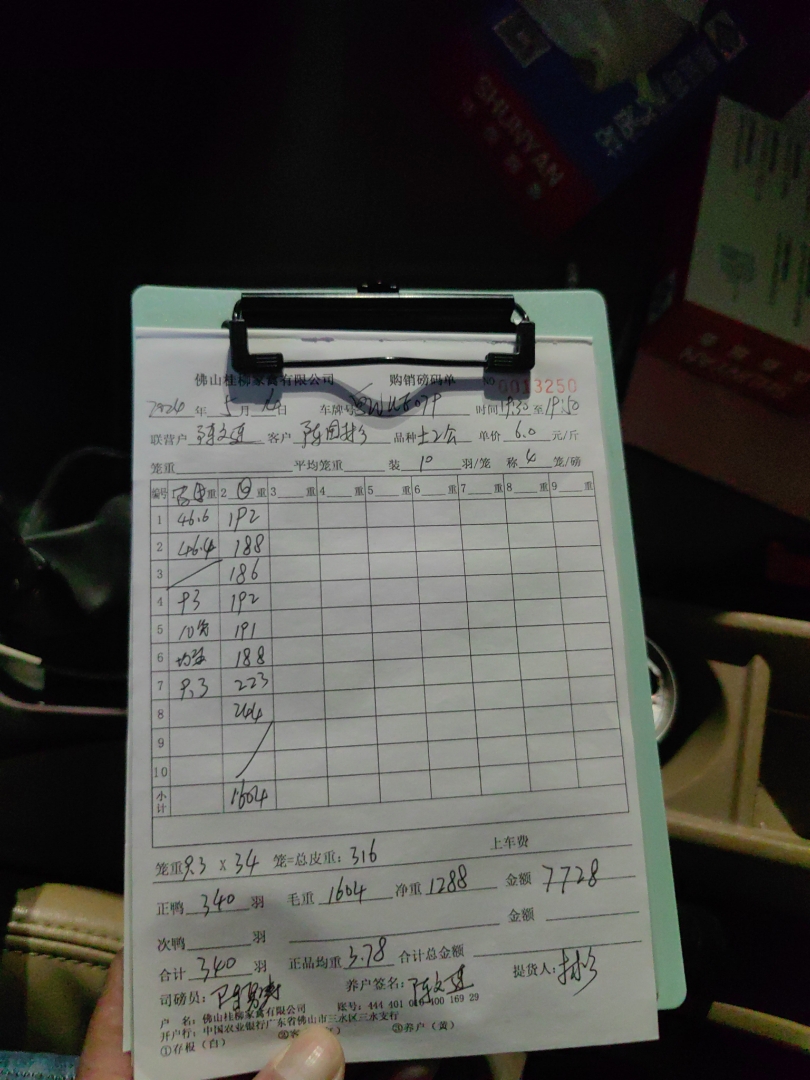 SHUNYAN
佛山桂柳家禽有限公司 购销磅码单 № 0013250
2024 年 5 月 14 日 车牌号 时间 19:30 至 19:50
联营户 陈文建 客户 品种 土2公 单价 6.0 元/斤
笼重 平均笼重 装 10 羽/笼 称 4 笼/磅
编号 重 2 重 3 重 4 重 5 重 6 重 7 重 8 重 9 重
1 46.6 192
2 46.4 188
3 186
4 93 192
5 10 191
6 188
7 9.3 223
8 244
9
10
小计 1604
笼重 9.3 x 34 笼=总皮重: 316 上车费
正鸭 340 羽 毛重 1604 净重 1288 金额 7728
次鸭 羽 金额
合计 340 羽 正品均重 3.78 合计总金额
司磅员: 养户签名: 陈文建 提货人:
户 名: 佛山桂柳家禽有限公司 账号: 444 401 010 400 169 29
开户行: 中国农业银行广东省佛山市三水区三水支行
①存根(白) ③养户(黄)